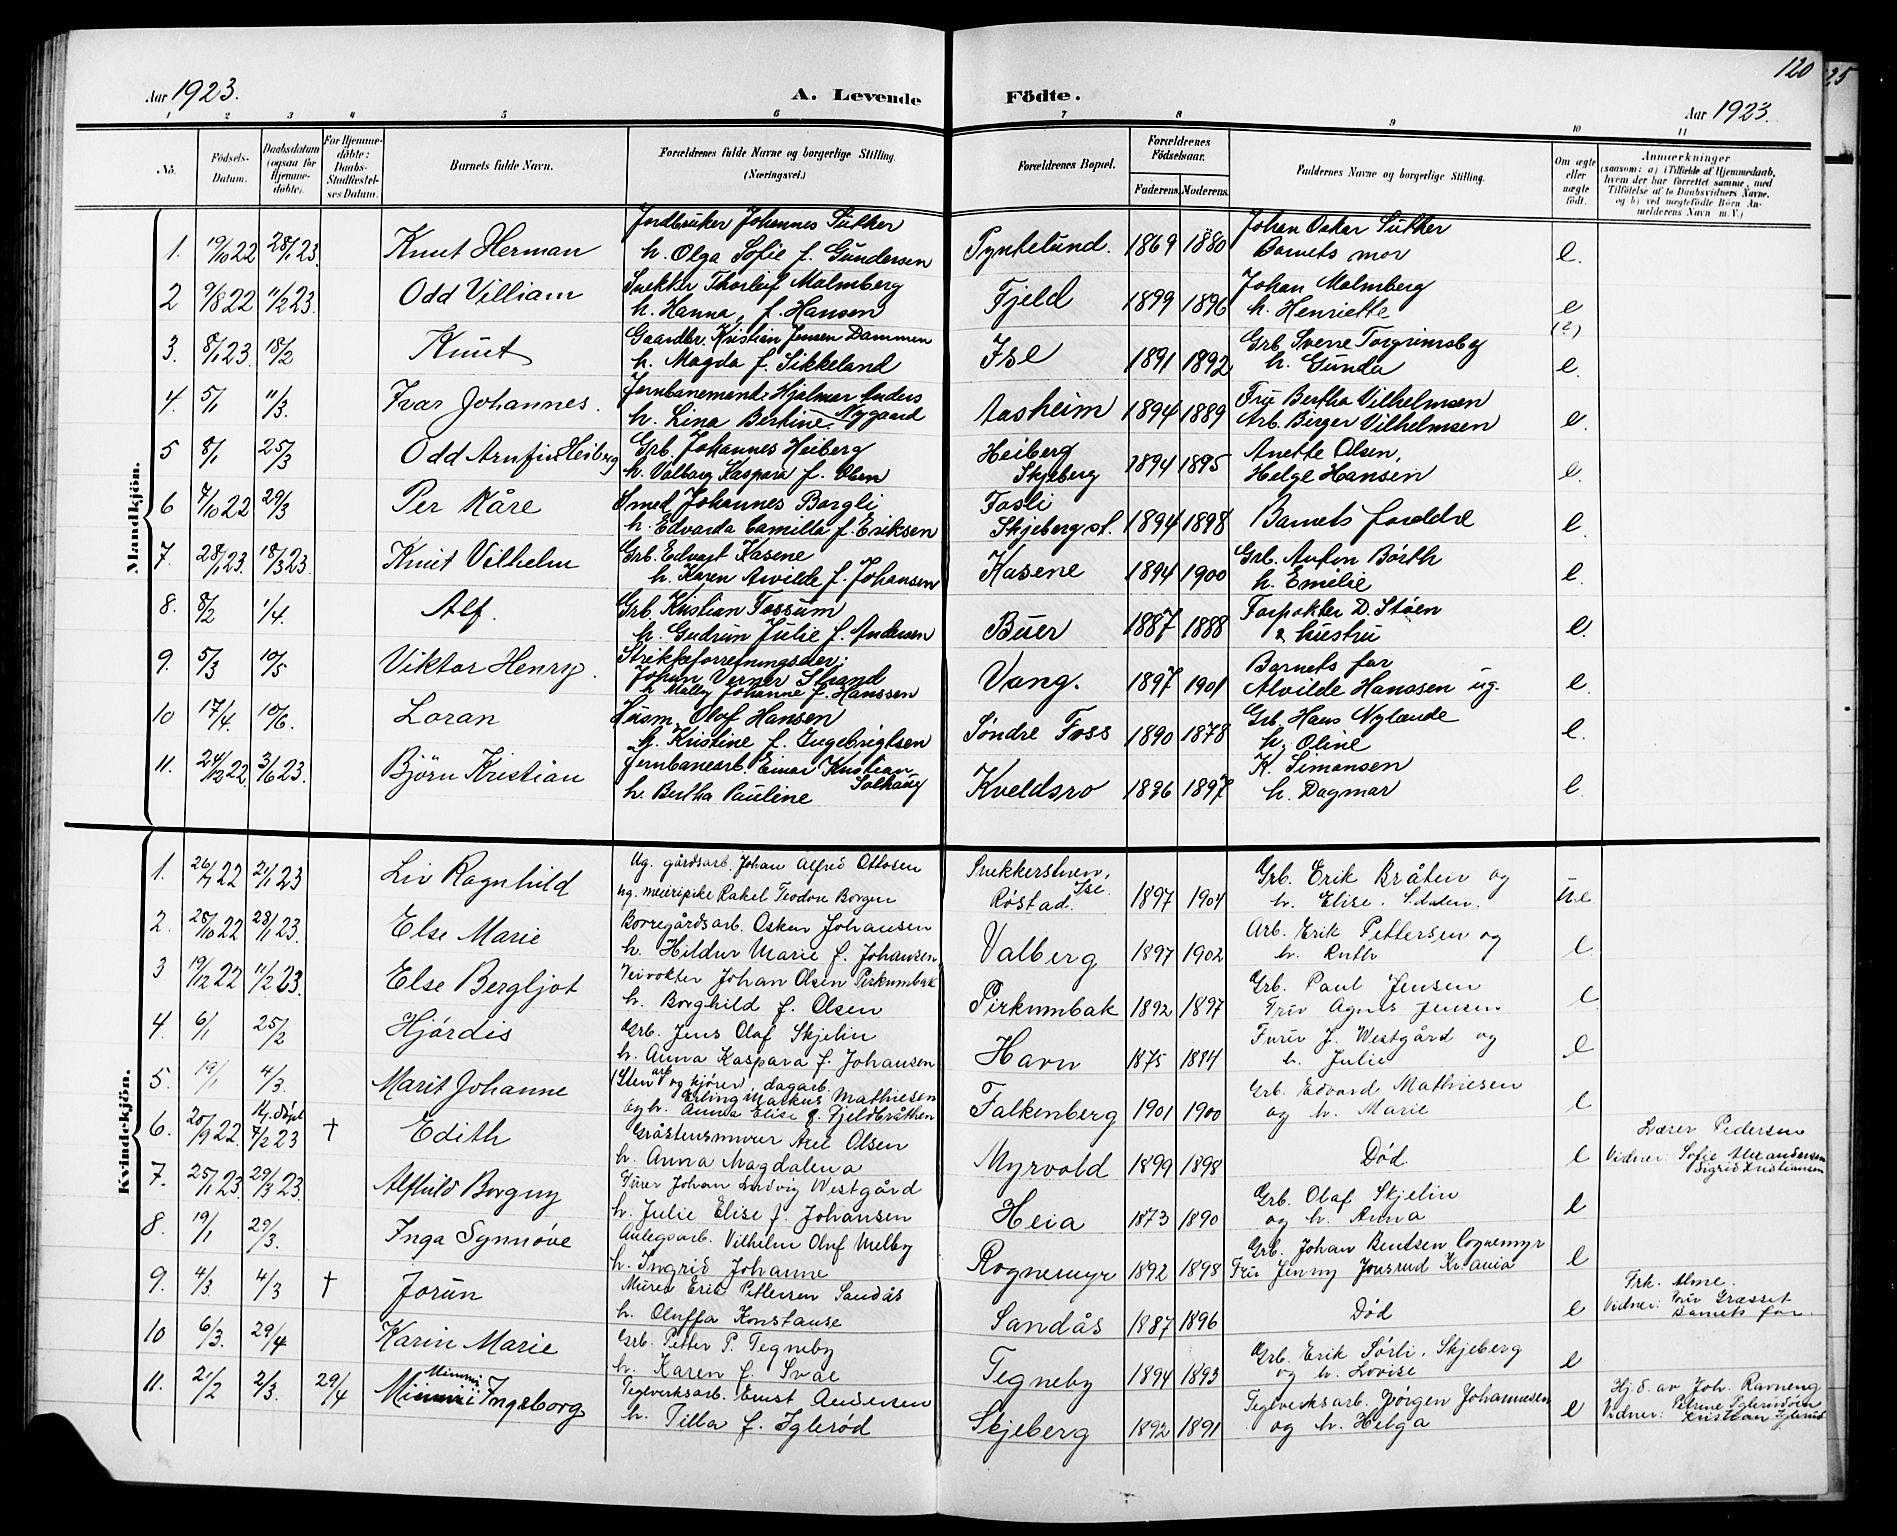 120
25
Aar 1923.
A. Levende
Födte.
Aar 1923.
1 2 3 4 5 6 7 8 9 10 11
No.
Födsels-Datum.
Daabsdatum (ogsaa for Hjemmedöbte).
For Hjemmedöbte: Daabs-Stadfæstelses Datum.
Barnets fulde Navn.
Forældrenes fulde Navne og borgerlige Stilling.
(Næringsvei.)
Forældrenes Bopæl.
Forældrenes Födselsaar.
Faderens. Moderens.
Faddernes Navne og borgerlige Stilling.
Om ægte eller uægte födt.
Anmærkninger
(saasom: a) i Tilfælde af Hjemmedaab, hvem der har forrettet samme, med Tilföielse af to Daabsvidners Navne, og b) ved uægtefödte Börn Anmelderens Navn m. V.)
Mandkjön.
Jordbruker Johannes Süther Johan Oskar Süther
1. 19/10 22 28/1 23. Knut Herman h. Olga Sofie f. Gundersen Tyntelund. 1869 1880 Barnets mor e.
Thorleif Malmberg Johan Malmberg
2 9/8 22 11/2 23. Odd Villiam h. Hanna, f. Hansen Fjeld 1899 1896 h. Henriette e
(e)
Gaardbr. Kristian Jensen Dammen Grb Sverre Torgrimsby
3. 8/1 23 18/2 Knut h. Magda f. Sikkeland Ise 1891 1892 h. Gunda e.
Jernbanemand: Hjalmar Anders Fru Bertha Vilhelmsen
4. 5/1 11/3. Ivar Johannes. h. Lina Bertine. Nygaard Aasheim 1894 1889 Arb. Birger Vilhelmsen e.
Grb. Johannes Heiberg Heiberg Anette Olsen,
5 8/1 25/3 Odd Arnfin Heiberg h. Valborg Kaspara f. Olsen Skjeberg 1894 1895 Helge Hansen e.
Smed Johannes Borgli Fosli
6 7/10 22 29/3 Per Kåre h. Edvarda Camilla f. Eriksen Skjeberg st. 1894 1898 Barnets foreldre e.
Grb. Edvart Kasene Grb. Anton Börth
7. 28/1 23. 18/3 23. Knut Vilhelm h. Karen Alvilde f. Johansen Kasene 1894 1900 h. Emilie e.
Grb Kristian Fossum Forpakter D. Stöen
8. 8/2 1/4. Alf. h. Gudrun Julie f. Andersen Buer 1887 1888 & hustru e.
Barnets far
9. 5/3 10/5 Viktor Henry. Johan Verner Strand Vang. 1897 1901 Alvilde Hanssen ug. e.
h Molly Johanne f. Hanssen
Husm. Olof Hansen Grb. Hans Nylende
10 17/4. 10/6. Loran h. Kristine f. Ingebrigtsen Søndre Foss 1890 1878 h. Oline e.
Jernbanearb. Einar Kristian Solhaug K. Simonsen
11. 24/12 22. 3/6 23. Björn Kristian h. Bertha Pauline Kveldsro 1896 1897 h. Dagmar e.
Kvindekjön.
Ug. gårdsarb. Johan Alfred Ottosen Ise. Grb. Erik Bråten og
1. 26/7 22 21/1 23 Liv Ragnhild ug. meieripike Rakel Teodora Borgen Røstad. 1897 1904 h. Elise u.e
Borregårdsarb. Oskar Johansen Arb. Erik Pettersen og
2. 28/10 22 28/1 23. Else Marie h. Hildur Marie f. Johansen Valberg 1897 1902 h. Ruth e
Veivokter Johan Olsen Pirkumbak Grb. Paul Jensen
3 19/12 22 11/2 23. Else Bergljot h. Borghild f. Olsen Pirkumbak 1892 1897 Fru Agnes Jensen e
Grb. Jens Olaf Skjelin Furir J. Westgård og
4 6/1 25/2 Hjördis h. Anna Kaspara f. Johansen Havn 1875 1884 h. Julie e
(Stenarb og kjører, dagarb. Grb. Edvard Mathiesen
5. 19/1 4/3. Marit Johanne Erling Markus Mathiesen Falkenberg 1901 1900 og h. Marie e
og h. Anna Elise f. Fjeldbråthen
Hj. døpt Gråstensmurer Axel Olsen Lærer Pedersen
6. 20/9 22 7/2 23 † Edith h. Anna Magdalena Myrvold 1899 1898 Død. e Vidner: Sofie Alexandersen
Sigrid Kristiansen
Furer Johan Ludvig Westgård Grb. Olaf Skjelin
7. 25/1 23. 29/3 23. Alfhild Borgny h. Julie Elise f. Johansen Heia 1873 1890 og h. Anna e
Anlegsarb. Vilhelm Oluf Melby Grb. Johan Bentsen Rognemyr
8. 19/1 29/3. Inga Synnöve h. Ingrid Johanne Rognemyr 1892 1898 Fru Jenny Jonsrud Kr.ania e
Murer Erik Pettersen Sandås Frk. Alme.
9. 4/3. 4/3 † Jorun h. Oluffa Konstanse Sandås 1887 1896 Død e Vidner: Fru Græsset
Barnets far
Grb. Petter P. Tegneby Grb. Erik Sörli, Skjeberg
10 6/3. 29/4 Karin Marie h. Karen f. Svae Tegneby 1894 1893 og h. Lovise e
Minmi Teglverksarb. Ernst Andersen Teglverksarb. Jørgen Johannesen Hj. d. av Joh. Ravneng
11. 21/2 2/3. 29/4 Ingeborg h. Tilla f. Iglerød Skjeberg 1892 1891 og h. Helga e Vidner: Petrine
Kristian Iglerød